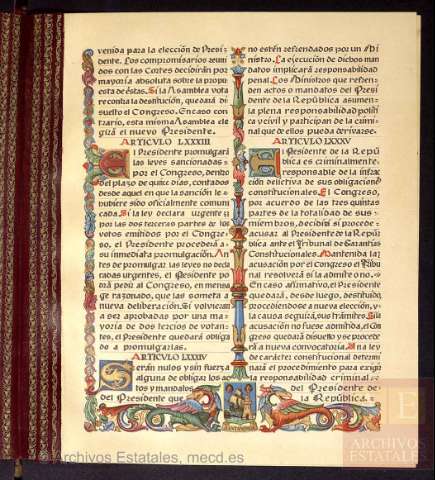 venida para la elección de Presi-
dente. Los compromisarios reuni
dos con las Cortes decidirán por
mayoría absoluta sobre la propu
esta de éstas. Si la Asamblea vota
re contra la destitución, quedará di
suelto el Congreso. En caso con
trario, esta misma Asamblea ele
girá el nuevo Presidente.
ARTICULO LXXXIII
El Presidente promulgará
las leyes sancionadas
por el Congreso, dentro
del plazo de quince días, contados
desde aquel en que la sanción le
hubiere sido oficialmente comuni
cada. Si la ley declara urgente p
or las dos terceras partes de los
votos emitidos por el Congre
so, el Presidente procederá a
su inmediata promulgación. An
tes de promulgar las leyes no decla
radas urgentes, el Presidente po
drá pedir al Congreso, en mensa
je razonado, que las someta a
nueva deliberación. Si volvieran
a ser aprobadas por una ma
yoría de dos tercios de votan
tes, el Presidente quedará obliga
do a promulgarlas.
ARTICULO LXXXIV
Serán nulos y sin fuerza
alguna de obligar los ac
tos y mandatos
del Presidente que
no estén refrendados por un Mi
nistro. La ejecución de dichos man
datos implicará responsabilidad
penal. Los Ministros que refren-
den actos o mandatos del Presi
dente de la República asumen
la plena responsabilidad políti
ca y civil y participan de la crimi
nal que de ellos pueda derivarse.
ARTICULO LXXXV
El Presidente de la Repú
blica es criminalmente
responsable de la infrac
ción delictiva de sus obligaciones
constitucionales. El Congreso,
por acuerdo de las tres quintas
partes de la totalidad de sus
miembros, decidirá si procede
acusar al Presidente de la Repú
blica ante el Tribunal de Garantías
Constitucionales. Mantenida la
acusación por el Congreso el Tribu
nal resolverá si la admite o no.
En caso afirmativo, el Presidente
quedará, desde luego, destituído,
procediéndose a nueva elección, y
la causa seguirá sus trámites. Si la
acusación no fuese admitida, el Con
greso quedará disuelto y se procede
rá a nueva convocatoria. Una ley
de carácter constitucional determi
nará el procedimiento para exigir
la responsabilidad criminal
del Presidente de
la República.
© Archivos Estatales, mecd.es
E
ARCHIVOS
ESTATALES